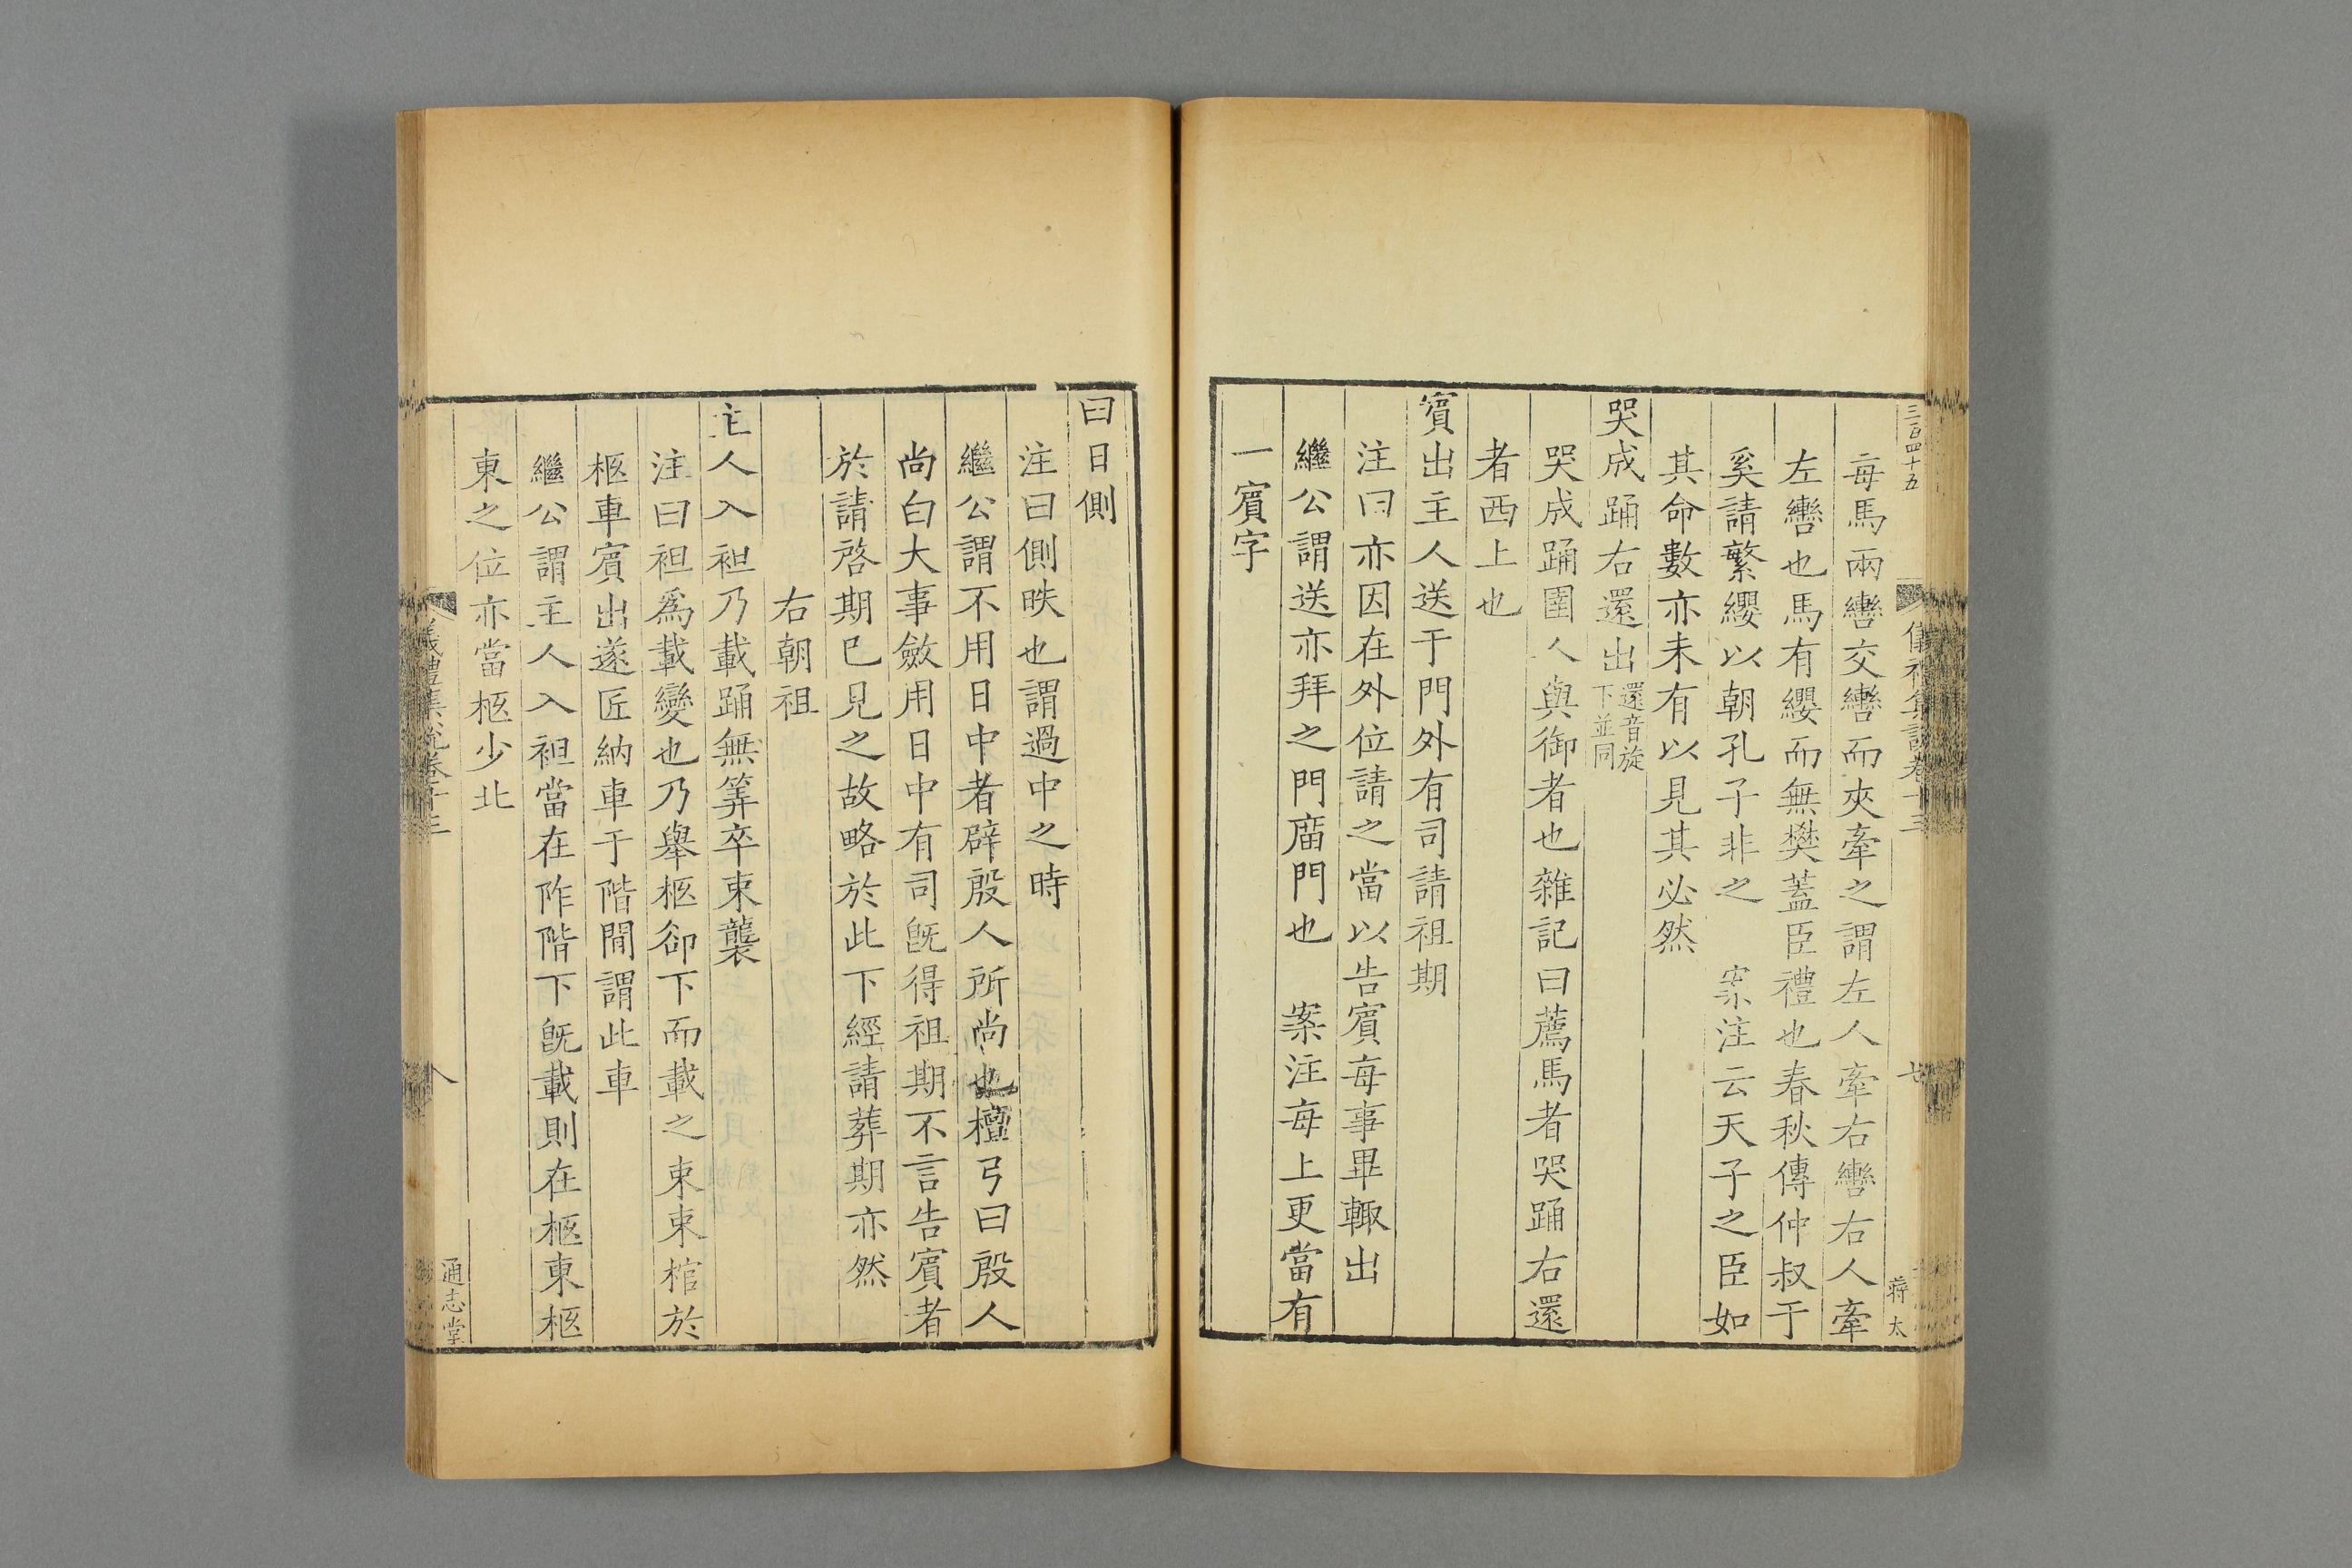 三百四十五
儀禮集說卷十三
七
蔣太
每馬兩轡交轡而夾牽之謂左人牽右轡右人牽
左轡也馬有纓而無樊蓋臣禮也春秋傳仲叔于
奚請繁纓以朝孔子非之　案注云天子之臣如
其命數亦未有以見其必然
哭成踊右還出還音旋下並同
哭成踊圉人與御者也雜記曰薦馬者哭踊右還
者西上也
賓出主人送于門外有司請祖期
注曰亦因在外位請之當以告賓每事畢輒出
繼公謂送亦拜之門廟門也　案注每上更當有
一賓字
曰日側
注曰側昳也謂過中之時
繼公謂不用日中者辟殷人所尚也檀弓曰殷人
尚白大事斂用日中有司旣得祖期不言告賓者
於請啓期已見之故略於此下經請葬期亦然
右朝祖
主人入袒乃載踊無筭卒束襲
注曰袒爲載變也乃舉柩卻下而載之束束棺於
柩車賓出遂匠納車于階間謂此車
繼公謂主人入袒當在阼階下旣載則在柩東柩
東之位亦當柩少北
儀禮集說卷十三
八
通志堂